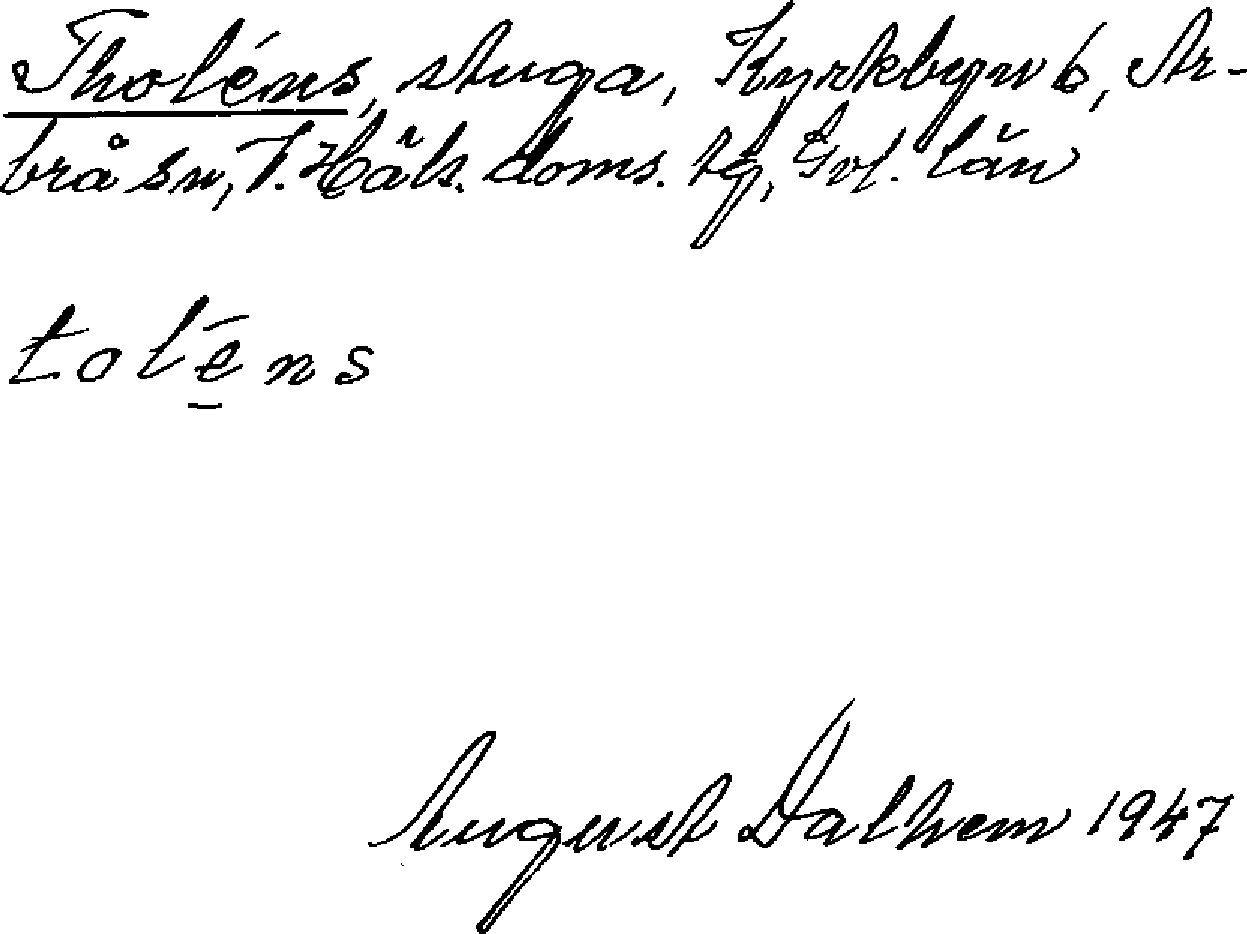 Tholéns, stuga, Kyrkbyn 6, Ar-
brå sn, V. Häls. doms. tg, Gvl. län
toléns
August Dalhem 1947